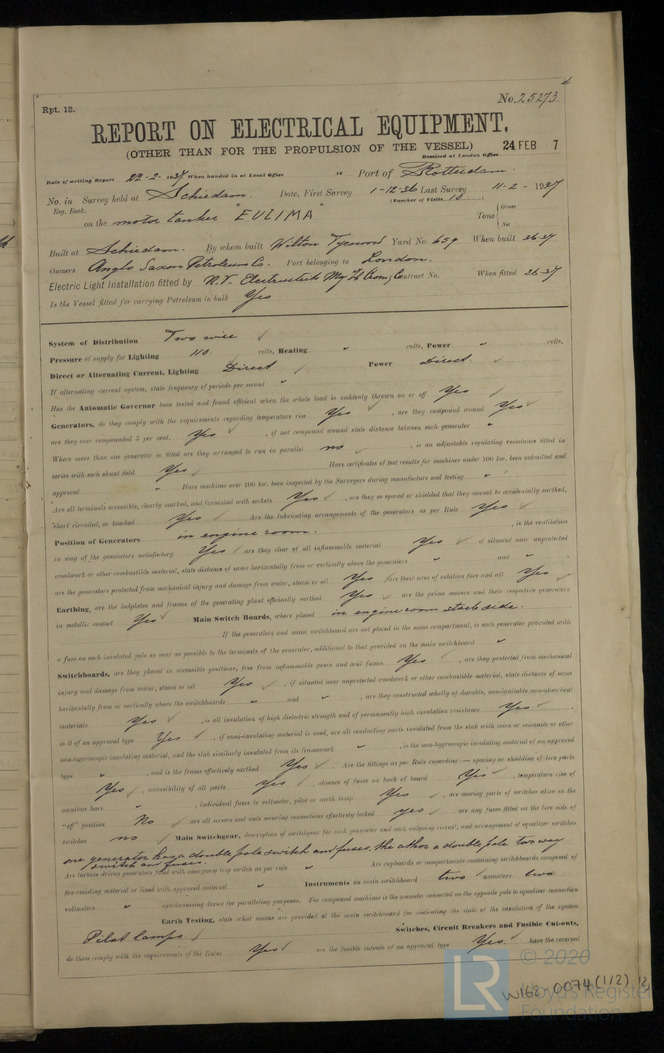 Rpt. 13.
No. 25273
REPORT ON ELECTRICAL EQUIPMENT.
(OTHER THAN FOR THE PROPULSION OF THE VESSEL)
Received at London Office 24 FEB 7
Date of writing Report 22-2-1937 When handed in at Local Office " Port of Rotterdam
No. in Reg. Book. Survey held at Schiedam. Date, First Survey 1-12-36 Last Survey 11-2-1937
(Number of Visits 10)
on the motor tanker "EULIMA" Tons { Gross Net
Built at Schiedam. By whom built Wilton Fyenoord Yard No. 659 When built 36-37
Owners Anglo Saxon Petroleum Co. Port belonging to London.
Electric Light Installation fitted by N.V. Electrotech My Contract No. When fitted 36-37
Is the Vessel fitted for carrying Petroleum in bulk Yes
System of Distribution Two wire
Pressure of supply for Lighting 110 volts, Heating " volts, Power " volts.
Direct or Alternating Current, Lighting Direct Power Direct
If alternating current system, state frequency of periods per second "
Has the Automatic Governor been tested and found efficient when the whole load is suddenly thrown on or off Yes
Generators, do they comply with the requirements regarding temperature rise Yes, are they compound wound Yes
are they over compounded 5 per cent. Yes, if not compound wound state distance between each generator "
Where more than one generator is fitted are they arranged to run in parallel no, is an adjustable regulating resistance fitted in
series with each shunt field Yes Have certificates of test results for machines under 100 kw. been submitted and
approved " Have machines over 100 kw. been inspected by the Surveyors during manufacture and testing "
Are all terminals accessible, clearly marked, and furnished with sockets Yes, are they so spaced or shielded that they cannot be accidentally earthed,
short circuited, or touched Yes Are the lubricating arrangements of the generators as per Rule Yes
Position of Generators in engine room. , is the ventilation
in way of the generators satisfactory Yes are they clear of all inflammable material Yes, if situated near unprotected
woodwork or other combustible material, state distance of same horizontally from or vertically above the generators " and ",
are the generators protected from mechanical injury and damage from water, steam or oil Yes, are their axes of rotation fore and aft Yes
Earthing, are the bedplates and frames of the generating plant efficiently earthed Yes are the prime movers and their respective generators
in metallic contact Yes Main Switch Boards, where placed in engine room starb side.
If the generators and main switchboard are not placed in the same compartment, is each generator provided with
a fuse on each insulated pole as near as possible to the terminals of the generator, additional to that provided on the main switchboard "
Switchboards, are they placed in accessible positions, free from inflammable gases and acid fumes Yes, are they protected from mechanical
injury and damage from water, steam or oil Yes, if situated near unprotected woodwork or other combustible material, state distance of same
horizontally from or vertically above the switchboards " and ", are they constructed wholly of durable, non-ignitable non-absorbent
materials Yes, is all insulation of high dielectric strength and of permanently high insulation resistance Yes
is it of an approved type Yes, if semi-insulating material is used, are all conducting parts insulated from the slab with mica or micanite or other
non-hygroscopic insulating material, and the slab similarly insulated from its framework ", is the non-hygroscopic insulating material of an approved
type ", and is the frame effectively earthed Yes. Are the fittings as per Rule regarding:— spacing or shielding of live parts
Yes, accessibility of all parts Yes, absence of fuses on back of board Yes, temperature rise of
omnibus bars ", individual fuses to voltmeter, pilot or earth lamp Yes, are moving parts of switches alive in the
"off" position No are all screws and nuts securing connections effectively locked yes are any fuses fitted on the live side of
switches no Main Switchgear, description of switchgear for each generator and each outgoing circuit, and arrangement of equalizer switches
one generator has a double pole switch and fuses, the other a double pole two way
switch and fuses.
Are turbine driven generators fitted with emergency trip switch as per rule " Are cupboards or compartments containing switchboards composed of
fire-resisting material or lined with approved material " Instruments on main switchboard two ammeters two
voltmeters " synchronising device for paralleling purposes. For compound machines is the ammeter connected on the opposite pole to equaliser connection
Earth Testing, state what means are provided at the main switchboard for indicating the state of the insulation of the system
Pilot lamps Switches, Circuit Breakers and Fusible Cut-outs,
do these comply with the requirements of the Rules Yes are the fusible cutouts of an approved type Yes. have the reversed
© 2020
LR Lloyd's Register
Foundation
W162-0074(1/2)